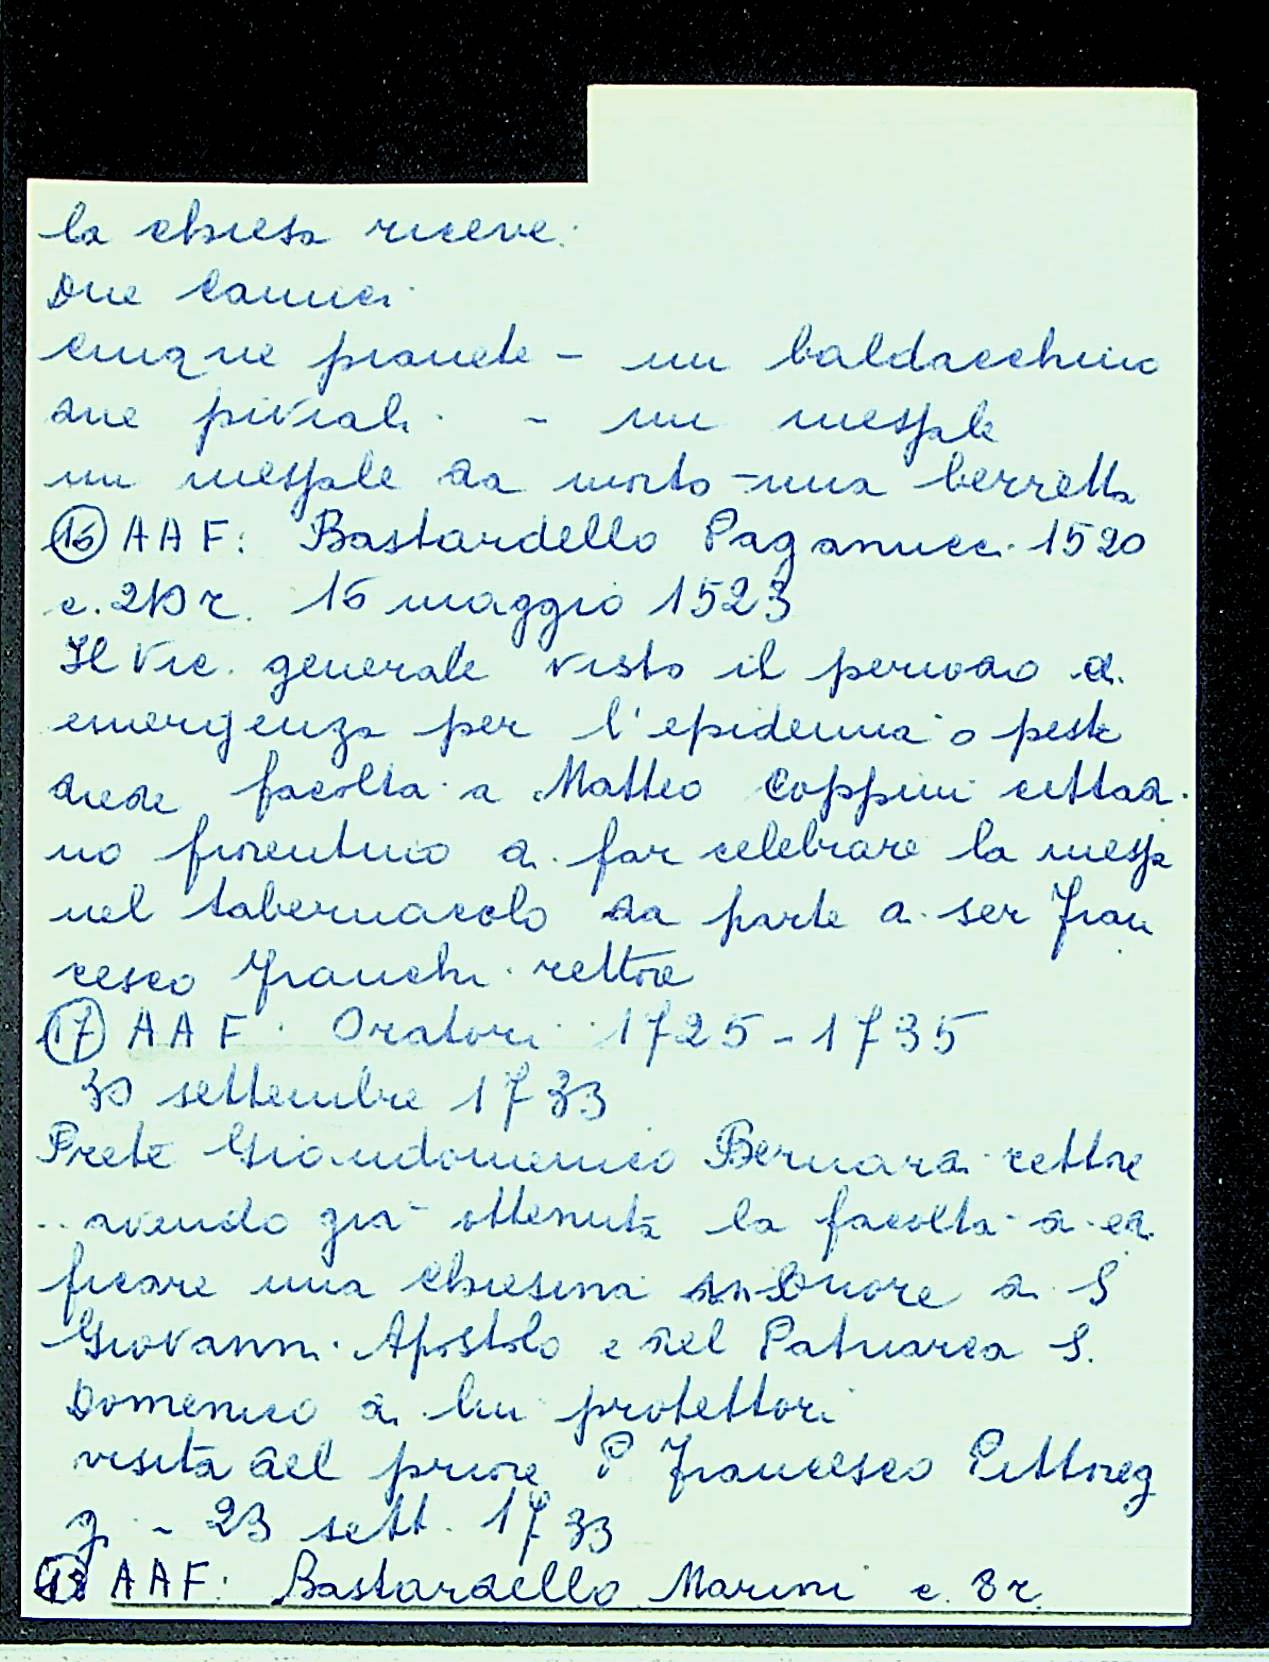 la chiesa riceve:
Due camici
cinque pianete - un baldacchino
due piviali - un messale
un messale da morto - una berretta
(16) AAF: Bastardello Paganucci 1520
c. 210 r. 16 maggio 1523
Il Vic. generale visto il periodo di
emergenza per l'epidemia o peste
diede facoltà a Matteo Coppini cittadi
no fiorentino di far celebrare la messa
nel tabernacolo da parte di ser Fran
cesco Franchi rettore
(17) AAF. Oratori 1725-1735
30 settembre 1733
Prete Giandomenico Bernardi rettore
.. avendo già ottenuta la facoltà di edi
ficare una chiesina in onore di S
Giovanni Apostolo e del Patriarca S.
Domenico di lui protettori
visita del priore P Francesco Pittoreg
gi - 23 sett. 1733
(18) AAF: Bastardello Marini c. 8 r.